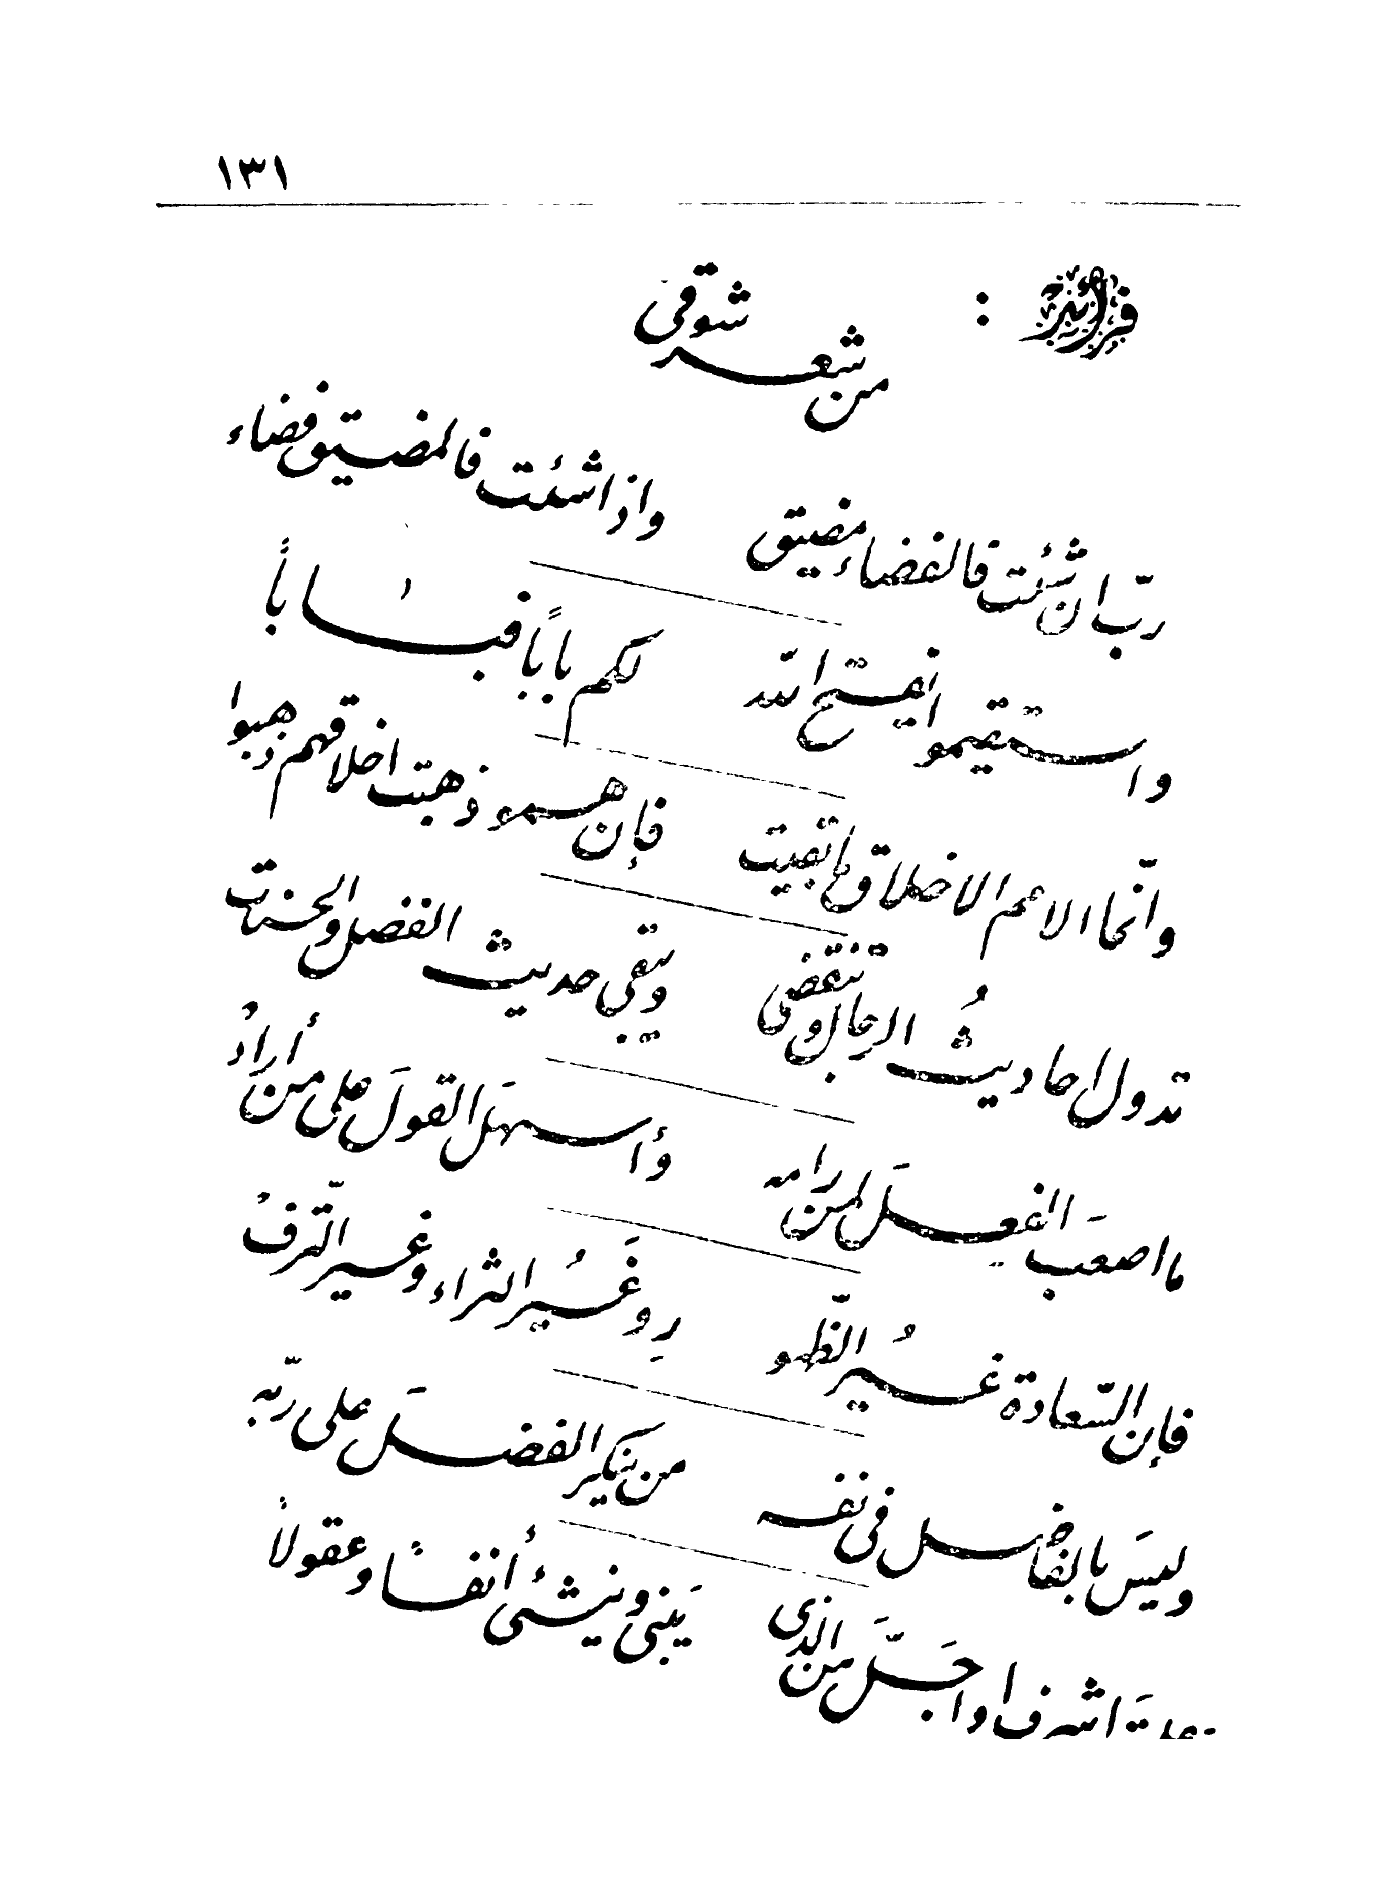 ١٣١
فرائد :
من شعر شوقي
ربّ ان شئت فالفضاء مضيق واذا شئت فالمضيق فضاء
واستقيموا يفتح اللّه لكم بابًا فبابًا
وانّما الامم الاخلاق ما بقيت فإن همو ذهبت اخلاقهم ذهبوا
تدول احاديثُ الرجال وتنقضي ويبقى حديث الفضل والحسنات
ما اصعبَ الفعلَ لمن رامه وأسهلَ القولَ على من أرادْ
فإن السّعادة غيرُ الظّهو رِ وغَيرُ الثراء وغير التّرفْ
وليسَ بالفاضل في نفسه من ينكر الفضلَ على ربّه
اشرف او اجلَّ من الذي يَبني وينشئ أنفسًا وعقولاً